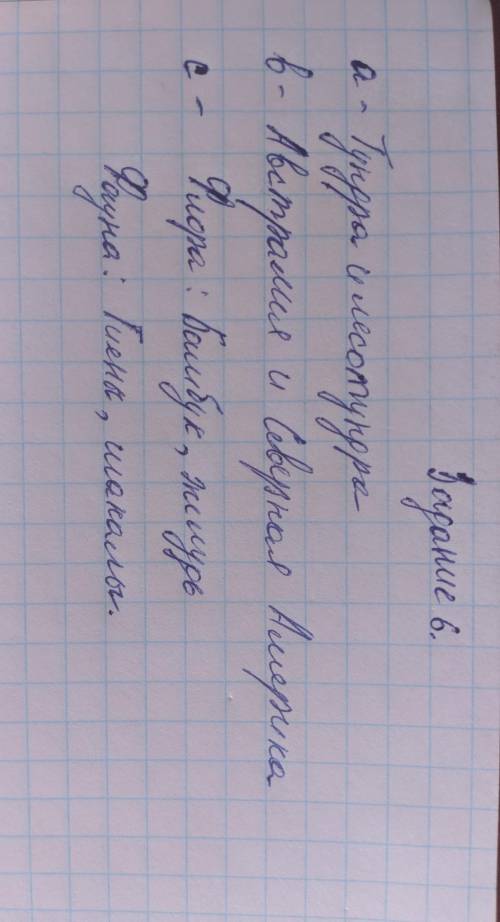 Задание 6.
а - Тундра и лесотундра
в - Австралия и Северная Америка
с - Флора: Бамбук, тигудь
Фауна: Гиены, шакалы.